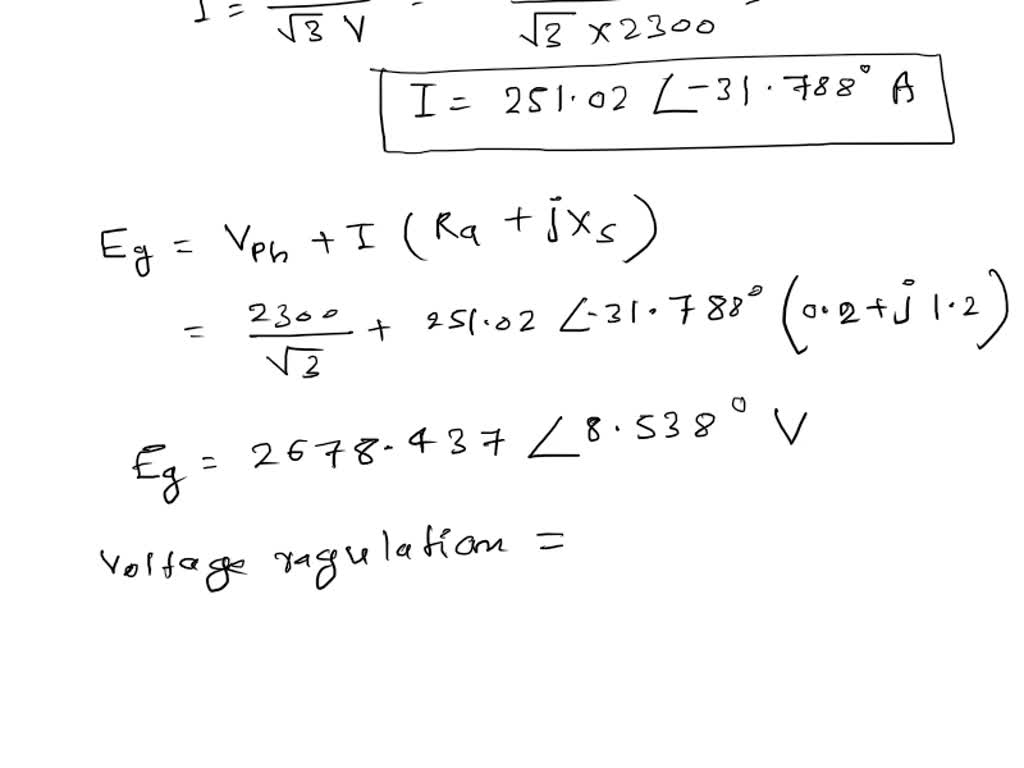 I = / √3 V = / √3 × 2300 =
I = 251.02 ∠-31.788° A
Eg = Vph + I (Ra + jXs)
= 2300 / √3 + 251.02 ∠-31.788° (0.2 + j 1.2)
Eg = 2678.437 ∠8.538° V
Voltage ragulation =